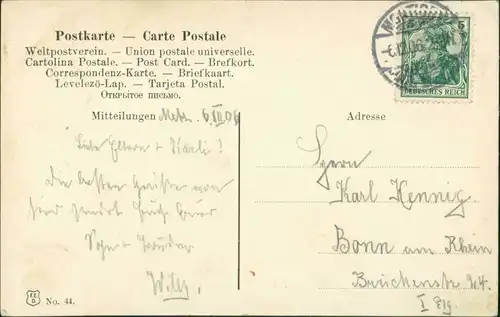 Postkarte — Carte Postale
Weltpostverein. — Union postale universelle.
Cartolina Postale. — Post Card. — Brefkort.
Correspondenz-Karte. — Briefkaart.
Levelező-Lap. — Tarjeta Postal.
Открытое письмо.
Mitteilungen Metz. 6.XII.06
Adresse
Liebe Eltern + Karli!
Die besten Grüße von
hier sendet Euch Euer
Sohn + Bruder
Willy.
Herrn
Karl Kennig
Bonn am Rhein
Brückenstr. 24.
I Etg.
No. 44.
5
DEUTSCHES REICH